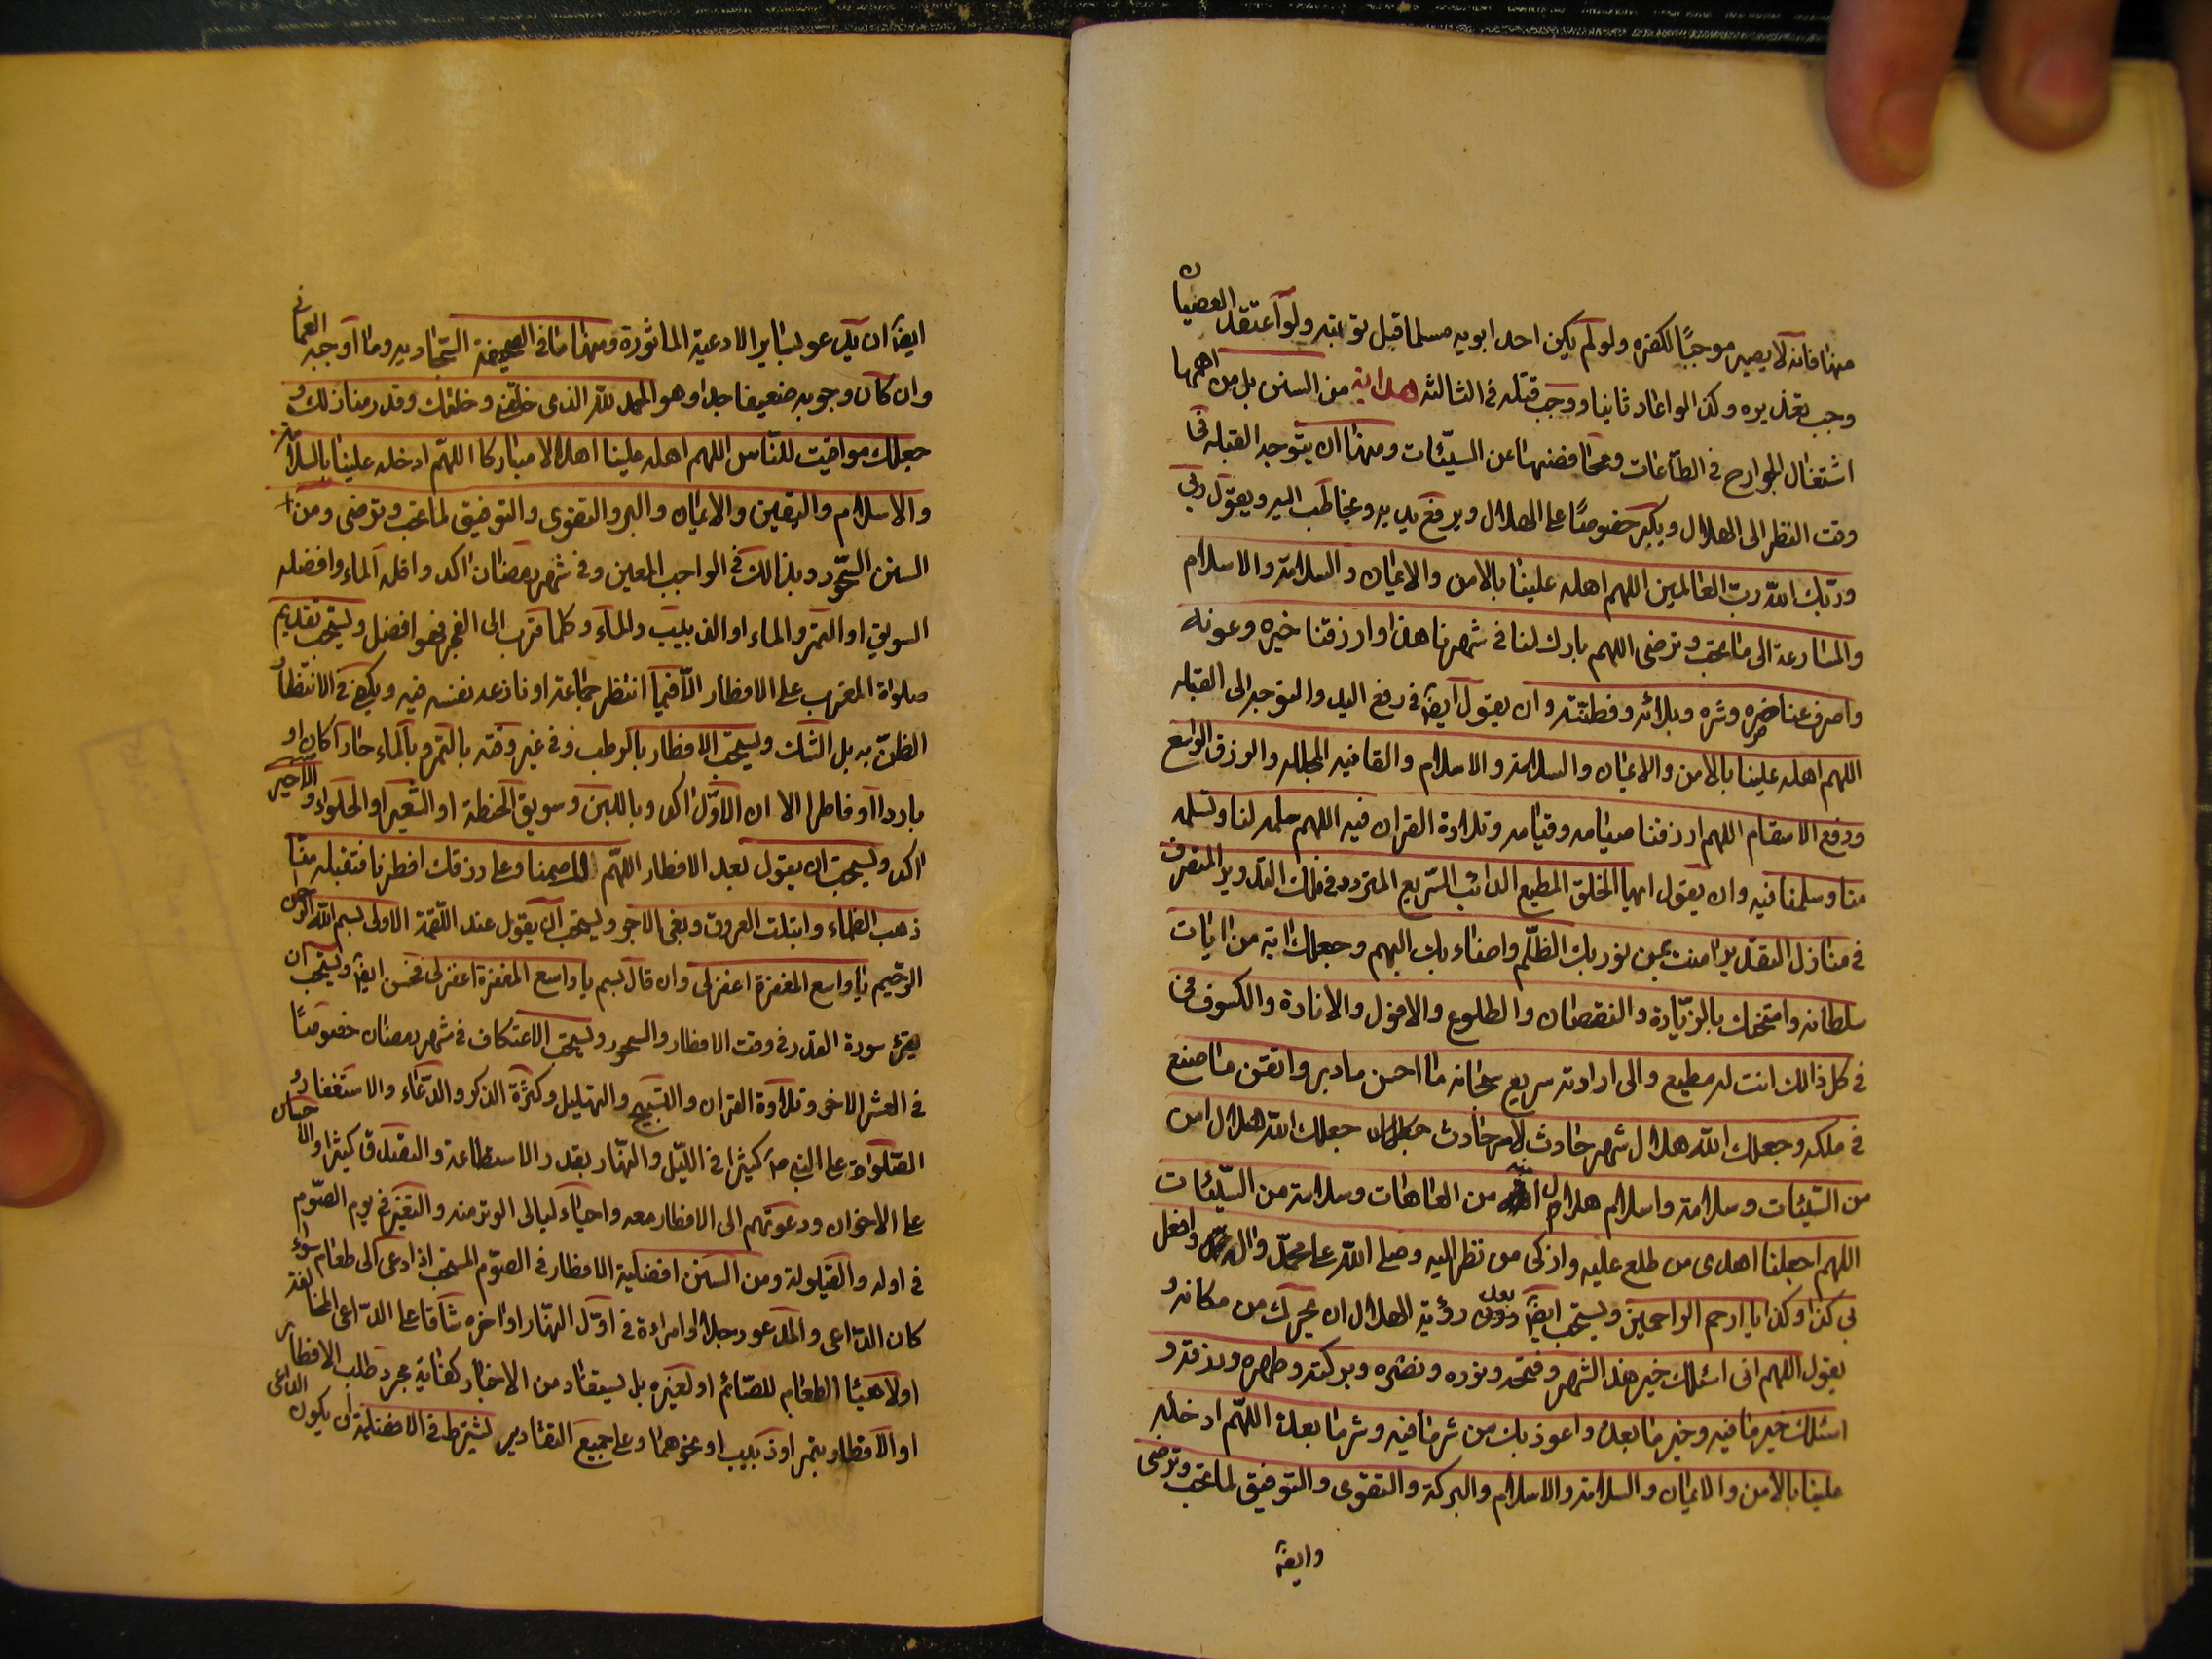 منها فانه لا يصير موجبًا لكفره ولو لم يكن احد ابويه مسلما قبل توبته ولو اعتقد العصيان
وجب تعذيره وكذا لو اعاد ثانيا ووجب قتله في الثالثه هداية من السنن بل من اهمها
اشتغال الجوارح في الطّاعات ومحافضتها عن السيّئات ومنها ان يتوجه القبله في
وقت النظر الى الهلال ويكبر خصوصًا على الهلال ويرفع يديه ويخاطب اليه ويقول ربّي
وربّك الله ربّ العالمين اللهم اهله علينا بالامن والايمان والسلامة والاسلام
والمسارعة الى ما تحب وترضى اللهم بارك لنا في شهرنا هذا وارزقنا خيره وعونه
واصرف عنا ضره وشره وبلائه وفطنته وان يقول ايضا في رفع اليد والتوجه الى القبله
اللهم اهله علينا بالامن والايمان والسلامة والاسلام والعافيه المجلله والرزق الواسع
ودفع الاسقام اللهم ارزقنا صيامه وقيامه وتلاوة القران فيه اللهم سلمه لنا وتسلمه
منا وسلمنا فيه وان يقول ايها الخلق المطيع الدائب السّريع المتردد في فلك التدوير المتصرف
في منازل التقدير امنت بمن نور بك الظلّم واضاء بك البهم وجعلك اية من ايات
سلطانه وامتحنك بالزّيادة والنقصان والطلوع والافول والانارة والكسوف في
في كل ذالك انت له مطيع والى ارادته سريع سبحانه ما احسن ما دبر واتقن ما صنع
في ملكه وجعلك الله هلال شهر حادث لامر حادث جعلك الله هلال امن
من السّيّئات وسلامة واسلام هلال امنة من العاهات وسلامة من السّيّئات
اللهم اجعلنا اهدى من طلع عليه وازكى من نظر اليه وصلى الله على محمّد واله وافعل
بي كذا وكذا يا ارحم الراحمين ويستحب ايضا بعد رؤية الهلال ان يحرك من مكانه و
يقول اللهم انى اسئلك خير هذا الشهر وفتحه ونوره ونصره وبركته وطهره ورزقه و
اسئلك خير ما فيه وخير ما بعده واعوذ بك من شر ما فيه وشر ما بعده اللهّم ادخله
علينا بالامن والايمان والسلامة والاسلام والبركة والتقوى والتوفيق لما تحب وترضى
وايضا
ايضا ان يدعو لساير الادعية الماثورة ومنها ما في الصحيفة السّجاديه وما اوجبه العماني
وان كان وجوبه ضعيفا جدا وهو الحمد لله الذى خلقني وخلقك وقدر منازلك و
جعلك مواقيت للنّاس اللهم اهله علينا اهلالا مباركا اللهّم ادخله علينا بالسلامة
والاسلام واليقين والايمان والبر والتقوى والتوفيق لما تحب وترضى ومن
السنن السّحور وبذالك في الواجب المعين وفي شهر رمضان اكد واقله الماء وافضله
السويق او التمر والماء او الزبيب والماء وكلما قرب الى الفجر فهو افضل ويستحب تقديم
صلواة المغرب على الافطار الّا فيما انتظر جماعة او نازعه نفسه فيه ويكفي في الانتظار
الظنّ به بل الشك ويستحب الافطار بالرطب وفي غير وقته بالتمر وبالماء حارا كان او
باردا او فاطرا الا ان الاوّل اكد وباللبن وسويق الحنطة او الشّعير او الحلواء والاخير
اكد ويستحب ان يقول بعد الافطار اللهّم لك صمنا وعلى رزقك افطرنا فتقبله منّا
ذهب الظماء وابتلت العروق وبقى الاجر ويستحب ان يقول عند اللّقمة الاولى بسم الله الرحمن
الرّحيم يا واسع المغفرة اغفرلى وان قال بسم يا واسع المغفرة اغفرلى فحسن ايضا ويستحب ان
يقرئ سورة القدر في وقت الافطار والسحور ويستحب الاعتكاف في شهر رمضان خصوصًا
في العشر الاخر وتلاوة القران والتسبيح والتهليل وكثرة الذكر والدّعاء والاستغفار و
الصّلواة على النبي ص كثيرا في اللّيل والنهّار بقدر الاستطاعة والتصدّق كثيرا والاحسان
على الاخوان ودعوتهم الى الافطار معه واحياء ليالى الوتر منه والتغير في يوم الصّوم
في اوله والقيلولة ومن السنن افضلية الافطار في الصّوم المستحب اذا دعى الى طعام سواء
كان الدّاعى والمدعو رجلا او امراءة في اوّل النهّار او اخره شاقا على الدّاعى المخالفة
اولا هيئا الطعام للصّائم او لغيره بل يستفاد من الاخبار كفاية مجرد طلب الافطار
او الافطار بتمر او زبيب او نحوهما وعلى جميع التقادير يشترط في الافضلية ان يكون الداعى